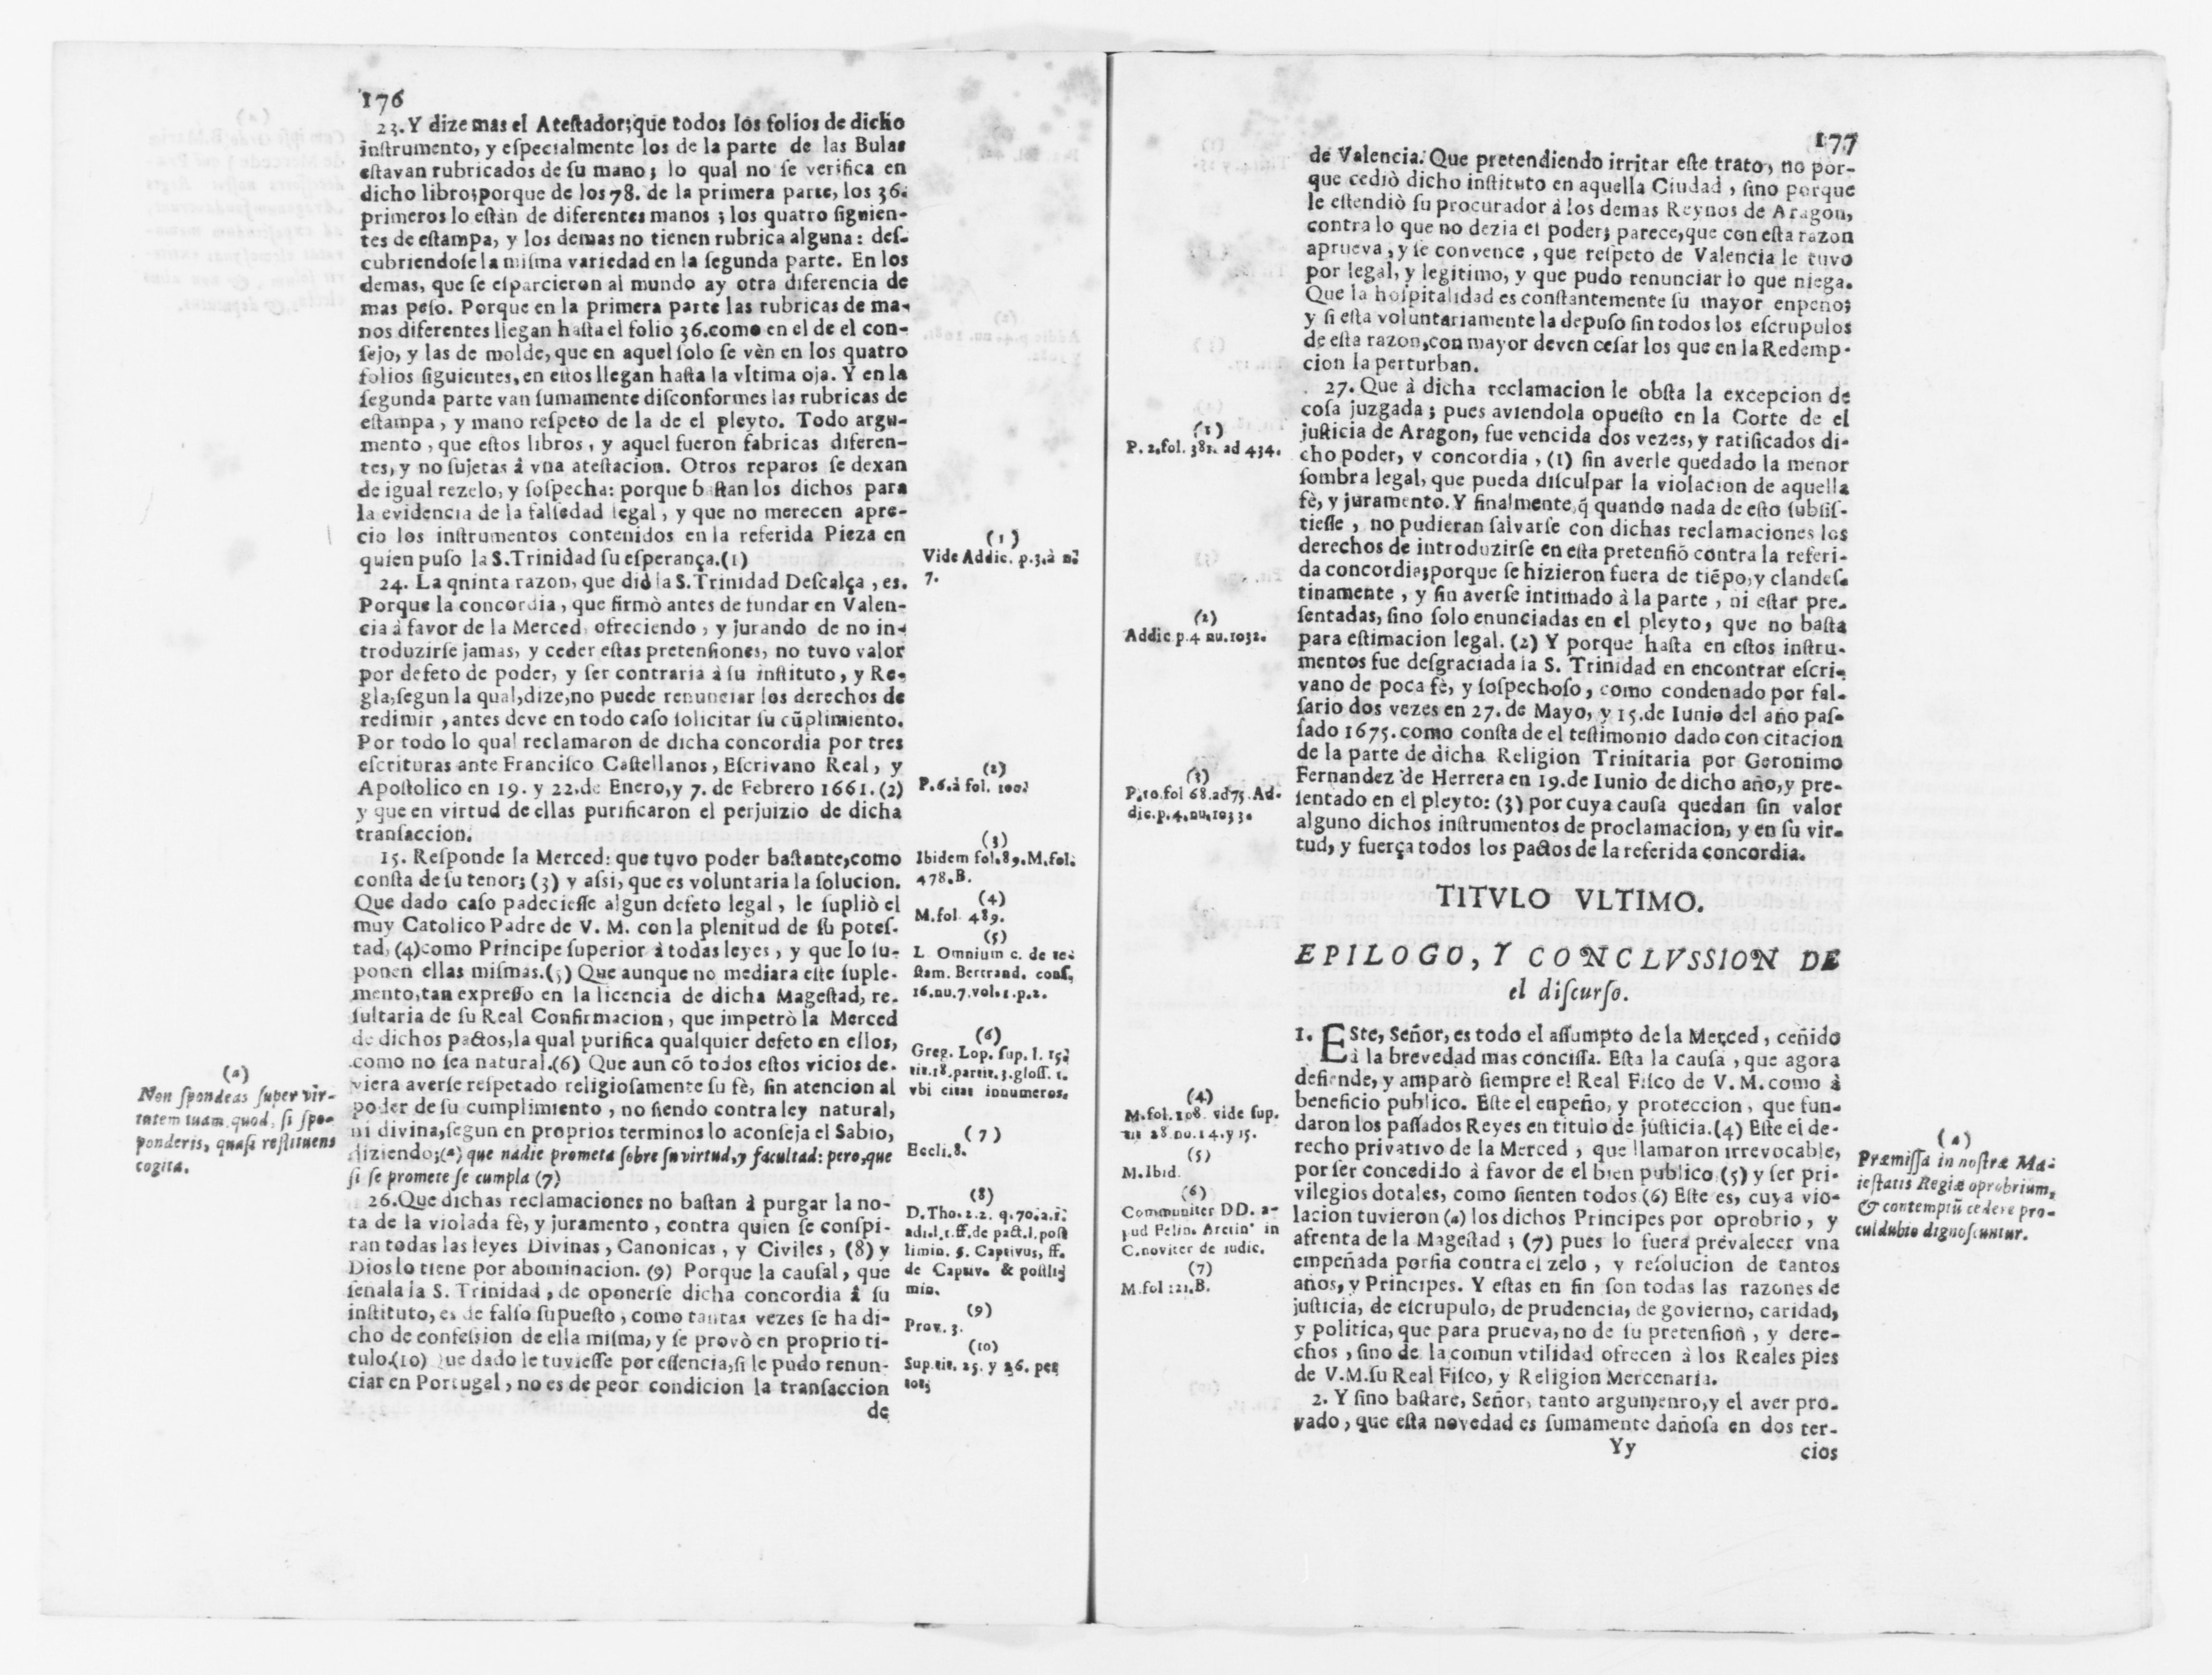 176
23. Y dize mas el Atestador; que todos los folios de dicho
instrumento, y especialmente los de la parte de las Bulas
estavan rubricados de su mano; lo qual no se verifica en
dicho libro; porque de los 78. de la primera parte, los 36.
primeros lo estàn de diferentes manos; los quatro siguien-
tes de estampa, y los demas no tienen rubrica alguna: des-
cubriendose la misma variedad en la segunda parte. En los
demas, que se esparcieron al mundo ay otra diferencia de
mas peso. Porque en la primera parte las rubricas de ma-
nos diferentes llegan hasta el folio 36. como en el de el con-
sejo, y las de molde, que en aquel solo se vèn en los quatro
folios siguientes, en estos llegan hasta la vltima oja. Y en la
segunda parte van sumamente disconformes las rubricas de
estampa, y mano respeto de la de el pleyto. Todo argu-
mento, que estos libros, y aquel fueron fabricas diferen-
tes, y no sujetas á vna atestacion. Otros reparos se dexan
de igual rezelo, y sospecha: porque bastan los dichos para
la evidencia de la falsedad legal, y que no merecen apre-
cio los instrumentos contenidos en la referida Pieza en
quien puso la S. Trinidad su esperança. (1)
24. La qninta razon, que diò la S. Trinidad Descalça, es.
Porque la concordia, que firmò antes de fundar en Valen-
cia à favor de la Merced, ofreciendo, y jurando de no in-
troduzirse jamas, y ceder estas pretensiones, no tuvo valor
por defeto de poder, y ser contraria à su instituto, y Re-
gla, segun la qual, dize, no puede renunciar los derechos de
redimir, antes deve en todo caso solicitar su cũplimiento.
Por todo lo qual reclamaron de dicha concordia por tres
escrituras ante Francisco Castellanos, Escrivano Real, y
Apostolico en 19. y 22. de Enero, y 7. de Febrero 1661. (2)
y que en virtud de ellas purificaron el perjuizio de dicha
transaccion.
15. Responde la Merced: que tuvo poder bastante, como
consta de su tenor; (3) y assi, que es voluntaria la solucion.
Que dado caso padeciesse algun defeto legal, le supliò el
muy Catolico Padre de V. M. con la plenitud de su potes-
tad, (4) como Principe superior à todas leyes, y que lo su-
ponen ellas mismas. (5) Que aunque no mediara este suple-
mento, tan expresso en la licencia de dicha Magestad, re-
sultaria de su Real Confirmacion, que impetrò la Merced
de dichos pactos, la qual purifica qualquier defeto en ellos,
como no sea natural. (6) Que aun cõ todos estos vicios de-
viera averse respetado religiosamente su fè, sin atencion al
poder de su cumplimiento, no siendo contra ley natural,
ni divina, segun en proprios terminos lo aconseja el Sabio,
diziendo; (a) que nadie prometa sobre su virtud, y facultad: pero, que
si se promete se cumpla (7)
26. Que dichas reclamaciones no bastan à purgar la no-
ta de la violada fè, y juramento, contra quien se conspi-
ran todas las leyes Divinas, Canonicas, y Civiles, (8) y
Dios lo tiene por abominacion. (9) Porque la causal, que
señala la S. Trinidad, de oponerse dicha concordia à su
instituto, es de falso supuesto, como tantas vezes se ha di-
cho de confession de ella misma, y se provò en proprio ti-
tulo. (10) Que dado le tuviesse por essencia, si le pudo renun-
ciar en Portugal, no es de peor condicion la transaccion
de
(a)
Non spondeas super vir-
tutem tuam quod, si spo-
ponderis, quasi restituens
cogita.
(1)
Vide Addic. p.3. à n.
7.
(2)
P.6. à fol. 100.
(3)
Ibidem fol. 89. M. fol.
478. B.
(4)
M. fol. 489.
(5)
L Omnium c. de te-
stam. Bertrand. cons.
16. nu. 7. vol. 1. p. 2.
(6)
Greg. Lop. sup. l. 15.
tit. 18. partit. 3. gloss. 1.
vbi citat innumeros.
(7)
Eccli. 8.
(8)
D. Tho. 2.2. q. 70. a. 1.
ad 1. l. 1. ff. de pact. l. post
limin. §. Captivus, ff.
de Captiv. & postli
min.
(9)
Prov. 3.
(10)
Sup. tit. 25. y 26. per
tot.
177
de Valencia. Que pretendiendo irritar este trato, no por-
que cediò dicho instituto en aquella Ciudad, sino porque
le estendiò su procurador à los demas Reynos de Aragon,
contra lo que no dezia el poder; parece, que con esta razon
aprueva, y se convence, que respeto de Valencia le tuvo
por legal, y legitimo, y que pudo renunciar lo que niega.
Que la hospitalidad es constantemente su mayor enpeño;
y si esta voluntariamente la depuso sin todos los escrupulos
de esta razon, con mayor deven cesar los que en la Redemp-
cion la perturban.
27. Que à dicha reclamacion le obsta la excepcion de
cosa juzgada; pues aviendola opuesto en la Corte de el
justicia de Aragon, fue vencida dos vezes, y ratificados di-
cho poder, y concordia, (1) sin averle quedado la menor
sombra legal, que pueda disculpar la violacion de aquella
fè, y juramento. Y finalmente, q̃ quando nada de esto subsis-
tiesse, no pudieran salvarse con dichas reclamaciones los
derechos de introduzirse en esta pretensiõ contra la referi-
da concordia; porque se hizieron fuera de tiẽpo, y clandes-
tinamente, y sin averse intimado à la parte, ni estar pre-
sentadas, sino solo enunciadas en el pleyto, que no basta
para estimacion legal. (2) Y porque hasta en estos instru-
mentos fue desgraciada la S. Trinidad en encontrar escri-
vano de poca fè, y sospechoso, como condenado por fal-
sario dos vezes en 27. de Mayo, y 15. de Iunio del año pas-
sado 1675. como consta de el testimonio dado con citacion
de la parte de dicha Religion Trinitaria por Geronimo
Fernandez de Herrera en 19. de Iunio de dicho año, y pre-
sentado en el pleyto: (3) por cuya causa quedan sin valor
alguno dichos instrumentos de proclamacion, y en su vir-
tud, y fuerça todos los pactos de la referida concordia.
TITVLO VLTIMO.
EPILOGO, Y CONCLVSSION DE
el discurso.
1. ESte, Señor, es todo el assumpto de la Merced, ceñido
à la brevedad mas concissa. Esta la causa, que agora
defiende, y amparò siempre el Real Fisco de V. M. como à
beneficio publico. Este el enpeño, y proteccion, que fun-
daron los passados Reyes en titulo de justicia. (4) Este el de-
recho privativo de la Merced, que llamaron irrevocable,
por ser concedido à favor de el bien publico (5) y ser pri-
vilegios dotales, como sienten todos (6) Este es, cuya vio-
lacion tuvieron (a) los dichos Principes por oprobrio, y
afrenta de la Magestad; (7) pues lo fuera prevalecer vna
empeñada porfia contra el zelo, y resolucion de tantos
años, y Principes. Y estas en fin son todas las razones de
justicia, de escrupulo, de prudencia, de govierno, caridad,
y politica, que para prueva, no de su pretension, y dere-
chos, sino de la comun vtilidad ofrecen à los Reales pies
de V.M. su Real Fisco, y Religion Mercenaria.
2. Y sino bastare, Señor, tanto argumenro, y el aver pro-
vado, que esta novedad es sumamente dañosa en dos ter-
Yy
cios
(1)
P. 2. fol. 381. ad 434.
(2)
Addic p. 4 nu. 1032.
(3)
P. 10. fol 68. ad 75. Ad-
dic. p. 4. nu. 1033.
(4)
M. fol. 108. vide sup.
tit 28. nu. 14. y 15.
(5)
M. Ibid.
(6)
Communiter DD. a-
pud Felin. Aretin. in
C. noviter de iudic.
(7)
M fol 121. B.
(a)
Præmissa in nostræ Ma-
iestatis Regiæ oprobrium,
& contemptũ cedere pro-
culdubio dignoscuntur.